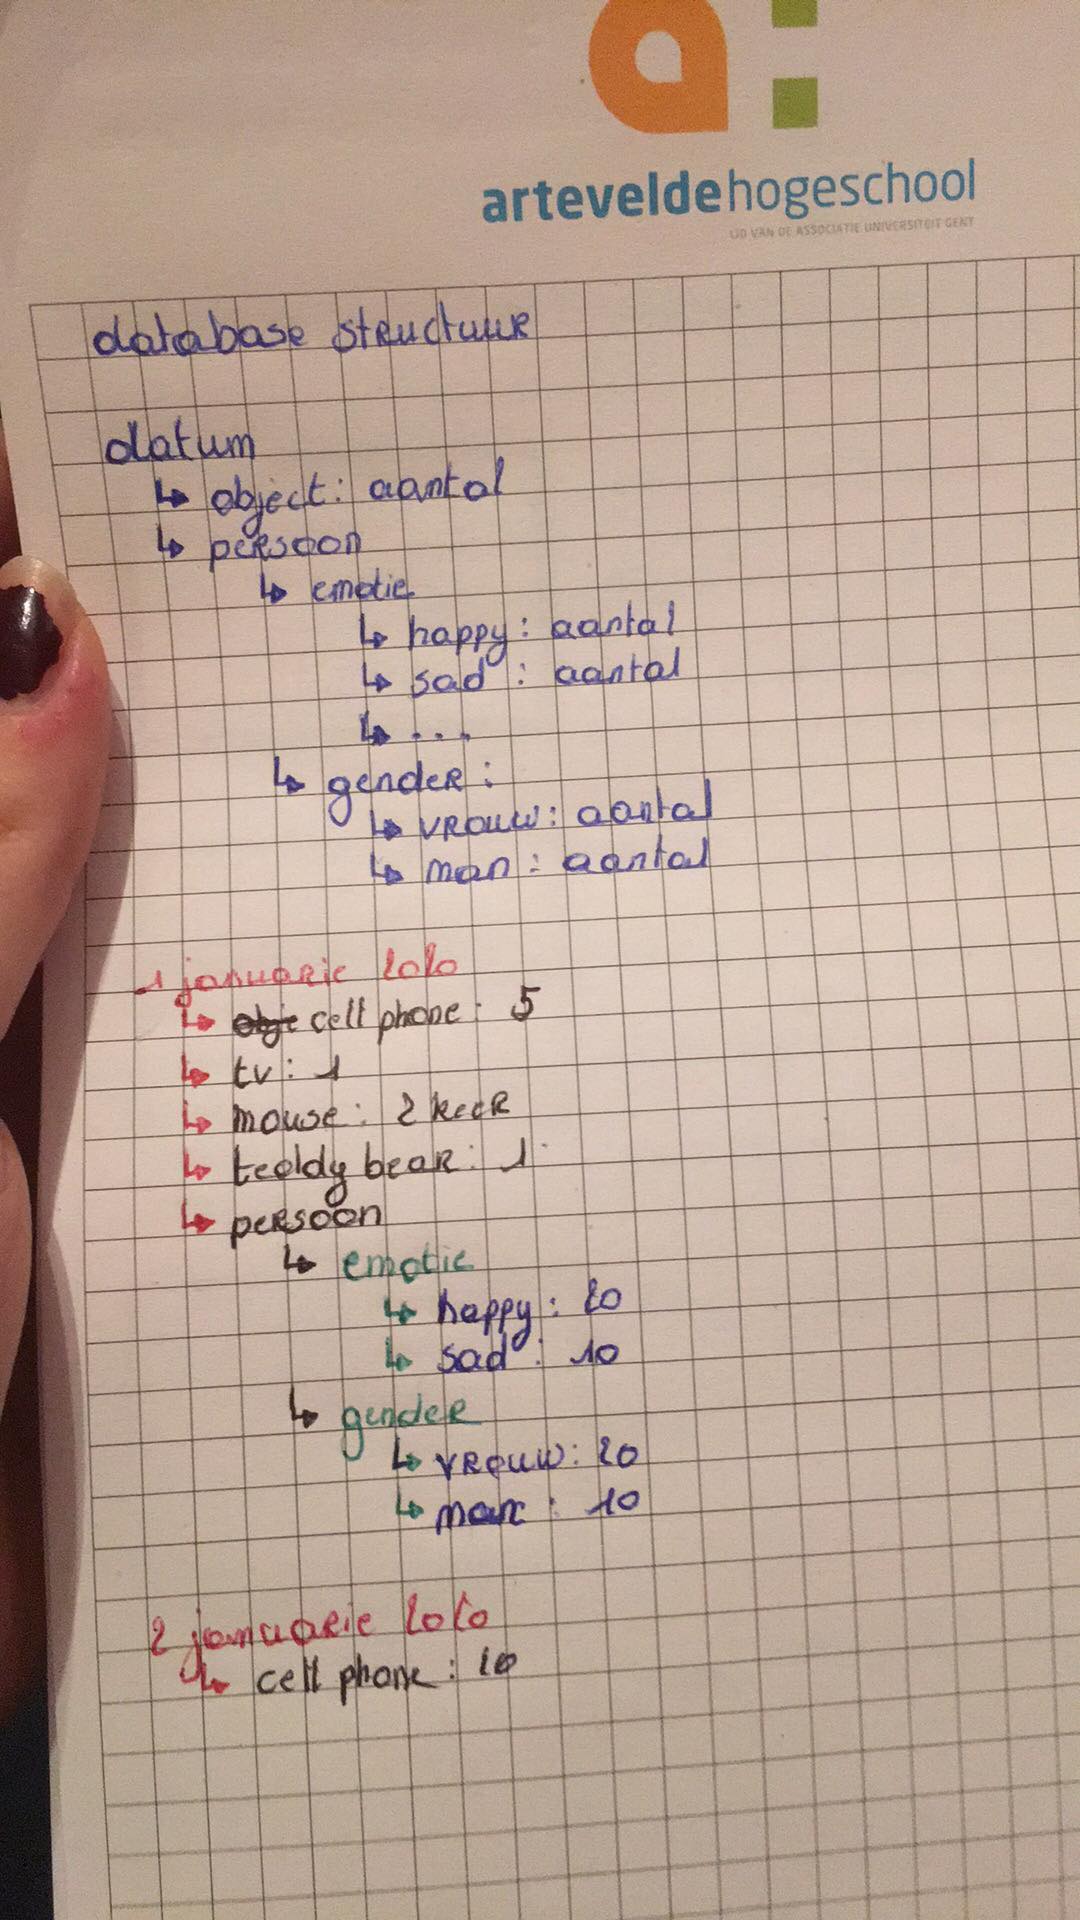 a:
arteveldehogeschool
LID VAN DE ASSOCIATIE UNIVERSITEIT GENT
database structuur
datum
↳ object: aantal
↳ persoon
↳ emotie
↳ happy: aantal
↳ sad : aantal
↳ ...
↳ gender:
↳ vrouw: aantal
↳ man : aantal
1 januarie 2020
↳ obje cell phone: 5
↳ tv: 1
↳ mouse: 2 keer
↳ teddy bear: 1
↳ persoon
↳ emotie
↳ happy: 20
↳ sad : 10
↳ gender
↳ vrouw: 20
↳ man : 10
2 januarie 2020
↳ cell phone: 10